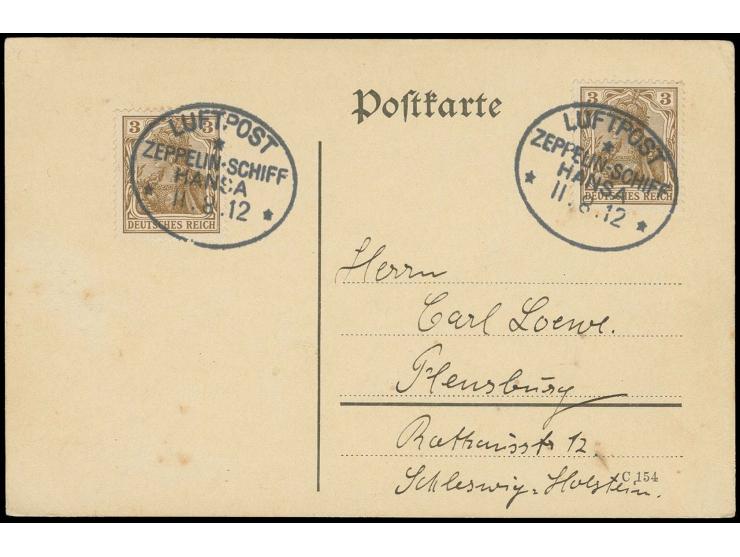 Postkarte
3 3
LUFTPOST
ZEPPELIN-SCHIFF
HANSA
11.8.12
DEUTSCHES REICH
3 3
LUFTPOST
ZEPPELIN-SCHIFF
HANSA
11.8.12
DEUTSCHES REICH
Herrn
Carl Loewe.
Flensburg
Rathausstr 12.
C 154
Schleswig-Holstein.